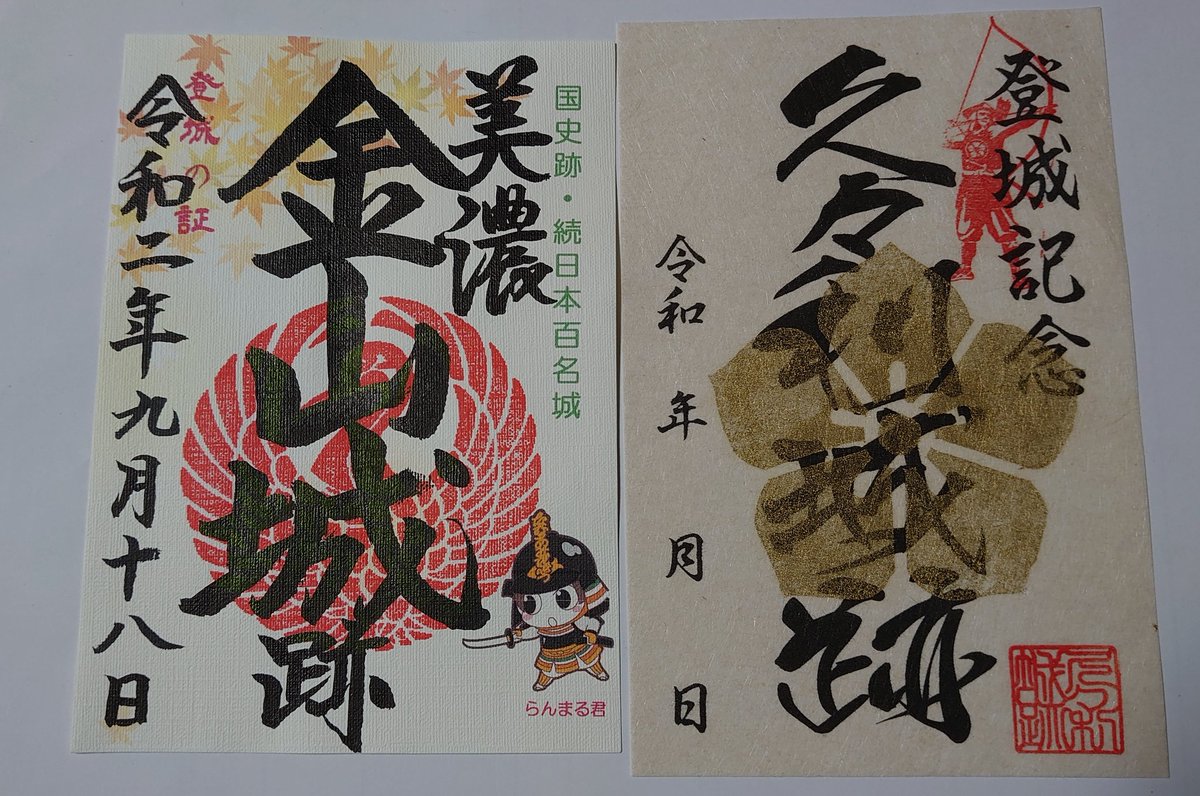 国史跡・続日本百名城
美濃
金山城跡
登城の証
令和二年九月十八日
らんまる君
登城記念
久々利城跡
令和 年 月 日
久々利
城跡